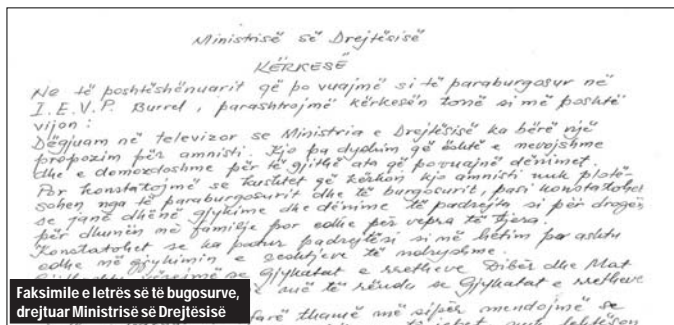 Ministrisë së Drejtësisë
KËRKESË
Ne të poshtëshënuarit që po vuajmë si të paraburgosur në
I.E.V.P. Burrel, parashtrojmë kërkesën tonë si më poshtë
vijon:
Dëgjuam në televizor se Ministria e Drejtësisë ka bërë një
propozim për amnisti. Kjo pa dyshim që është e nevojshme
dhe e domozdoshme për të gjithë ata që po vuajnë dënimet.
Por konstatojmë se kushtet që kërkon kjo amnisti nuk plotë-
sohen nga të paraburgosurit dhe të burgosurit, pasi konstatohet
se janë dhënë gjykime dhe dënime të padrejta si për drogën
për dhunën në familje por edhe për vepra të tjera.
Konstatohet se ka patur padrejtësi si në hetim por ashtu
edhe në gjykimin e çështjeve të ndryshme.
se Gjykatat e rretheve Dibër dhe Mat
më të rënda se Gjykatat e rretheve
thamë më sipër mendojmë se
Faksimile e letrës së të bugosurve,
drejtuar Ministrisë së Drejtësisë